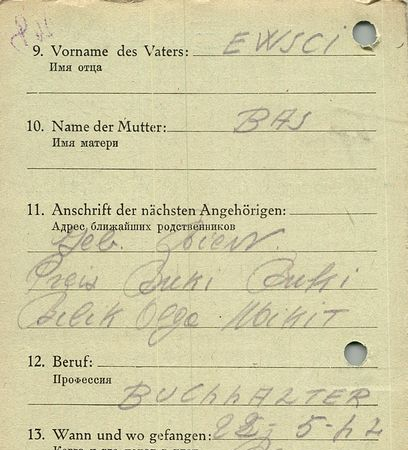 9. Vorname des Vaters: EWSCI
Имя отца
10. Name der Mutter: BAS
Имя матери
11. Anschrift der nächsten Angehörigen:
Адрес ближайших родственников
Geb.
Buki Buki
Olga
12. Beruf:
Профессия
BUCHHALTER
13. Wann und wo gefangen: 22. 5-42